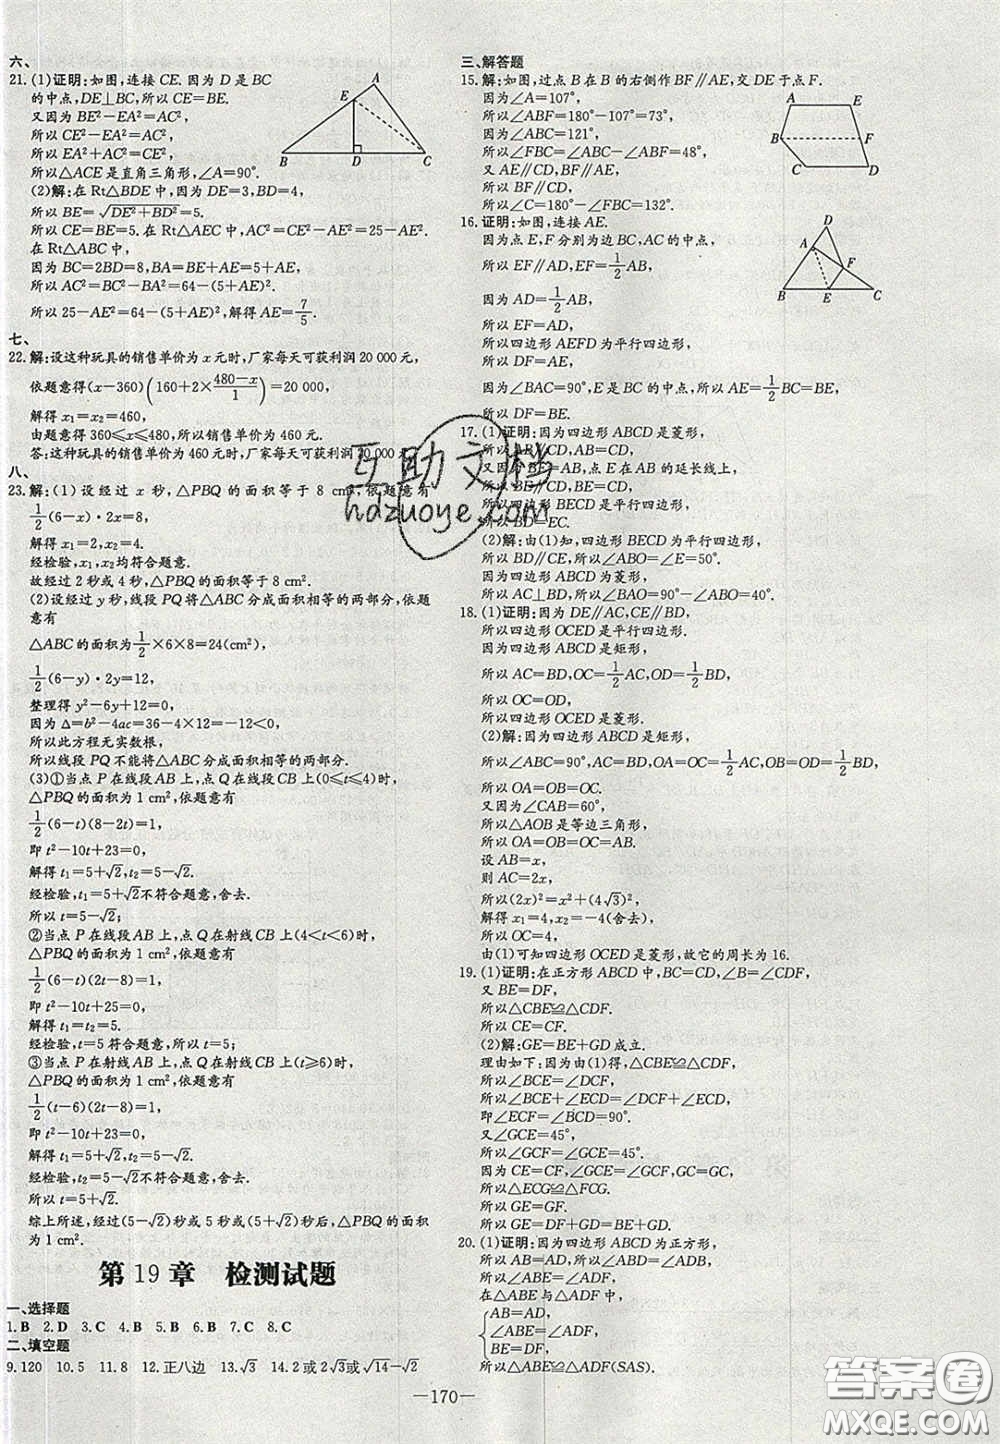 六、
21.(1)证明:如图,连接CE.因为D是BC
的中点,DE⊥BC,所以CE=BE.
又因为BE²-EA²=AC²,
所以CE²-EA²=AC²,
所以EA²+AC²=CE²,
所以△ACE是直角三角形,∠A=90°.
(2)解:在Rt△BDE中,因为DE=3,BD=4,
所以BE=√(DE²+BD²)=5.
所以CE=BE=5.在Rt△AEC中,AC²=CE²-AE²=25-AE².
在Rt△ABC中,
因为BC=2BD=8,BA=BE+AE=5+AE,
所以AC²=BC²-BA²=64-(5+AE)²,
所以25-AE²=64-(5+AE)²,解得AE=7/5.
七、
22.解:设这种玩具的销售单价为x元时,厂家每天可获利润20 000元,
依题意得(x-360)(160+2×(480-x)/1)=20 000,
解得x₁=x₂=460,
由题意得360≤x≤480,所以销售单价为460元.
答:这种玩具的销售单价为460元时,厂家每天可获利润20 000元.
八、
23.解:(1)设经过x秒,△PBQ的面积等于8 cm²,依题意有
1/2(6-x)·2x=8,
解得x₁=2,x₂=4.
经检验,x₁,x₂均符合题意.
故经过2秒或4秒,△PBQ的面积等于8 cm².
(2)设经过y秒,线段PQ将△ABC分成面积相等的两部分,依题
意有
△ABC的面积为1/2×6×8=24(cm²),
1/2(6-y)·2y=12,
整理得y²-6y+12=0,
因为Δ=b²-4ac=36-4×12=-12<0,
所以此方程无实数根,
所以线段PQ不能将△ABC分成面积相等的两部分.
(3)①当点P在线段AB上,点Q在线段CB上(0≤t≤4)时,
△PBQ的面积为1 cm²,依题意有
1/2(6-t)(8-2t)=1,
即t²-10t+23=0,
解得t₁=5+√2,t₂=5-√2.
经检验,t=5+√2不符合题意,舍去.
所以t=5-√2;
②当点P在线段AB上,点Q在射线CB上(4<t≤6)时,
△PBQ的面积为1 cm²,依题意有
1/2(6-t)(2t-8)=1,
即t²-10t+25=0,
解得t₁=t₂=5.
经检验,t=5符合题意,所以t=5;
③当点P在射线AB上,点Q在射线CB上(t≥6)时,
△PBQ的面积为1 cm²,依题意有
1/2(t-6)(2t-8)=1,
即t²-10t+23=0,
解得t₁=5+√2,t₂=5-√2.
经检验,t=5-√2不符合题意,舍去.
所以t=5+√2.
综上所述,经过(5-√2)秒或5秒或(5+√2)秒后,△PBQ的面积
为1 cm².
第19章 检测试题
一、选择题
1.B 2.D 3.C 4.B 5.B 6.B 7.C 8.C
二、填空题
9.120 10.5 11.8 12.正八边 13.√3 14.2或2√3或√14-√2
三、解答题
15.解:如图,过点B在B的右侧作BF∥AE,交DE于点F.
因为∠A=107°,
所以∠ABF=180°-107°=73°,
因为∠ABC=121°,
所以∠FBC=∠ABC-∠ABF=48°,
又AE∥CD,BF∥AE,
所以BF∥CD,
所以∠C=180°-∠FBC=132°.
16.证明:如图,连接AE.
因为点E,F分别为边BC,AC的中点,
所以EF∥AB,EF=1/2AB,
因为AD=1/2AB,
所以AD=EF,
所以四边形AEFD为平行四边形,
所以DF=AE,
因为∠BAC=90°,E是BC的中点,所以AE=1/2BC=BE,
所以DF=BE.
17.(1)证明:因为四边形ABCD是菱形,
所以AB∥CD,AB=CD,
又因为BE=AB,点E在AB的延长线上,
所以BE∥CD,BE=CD,
所以四边形BECD是平行四边形,
所以BD=EC.
(2)解:由(1)知,四边形BECD为平行四边形,
所以BD∥CE,所以∠ABO=∠E=50°.
因为四边形ABCD为菱形,
所以AC⊥BD,所以∠BAO=90°-∠ABO=40°.
18.(1)证明:因为DE∥AC,CE∥BD,
所以四边形OCED是平行四边形.
因为四边形ABCD是矩形,
所以AC=BD,OC=1/2AC,OD=1/2BD,
所以OC=OD,
所以四边形OCED是菱形.
(2)解:因为四边形ABCD是矩形,
所以∠ABC=90°,AC=BD,AO=OC=1/2AC,OB=OD=1/2BD,
所以OA=OB=OC.
又因为∠CAB=60°,
所以△AOB是等边三角形,
所以OA=OB=OC=AB.
设AB=x,
则AC=2x,
所以(2x)²=x²+(4√3)²,
解得x₁=4,x₂=-4(舍去),
所以OC=4,
由(1)可知四边形OCED是菱形,故它的周长为16.
19.(1)证明:在正方形ABCD中,BC=CD,∠B=∠CDF,
又BE=DF,
所以△CBE≌△CDF.
所以CE=CF.
(2)解:GE=BE+GD成立.
理由如下:因为由(1)得,△CBE≌△CDF,
所以∠BCE=∠DCF,
所以∠BCE+∠ECD=∠DCF+∠ECD,
即∠ECF=∠BCD=90°.
又∠GCE=45°,
所以∠GCF=∠GCE=45°.
因为CE=CF,∠GCE=∠GCF,GC=GC,
所以△ECG≌△FCG.
所以GE=GF.
所以GE=DF+GD=BE+GD.
20.(1)证明:因为四边形ABCD为正方形,
所以AB=AD,所以∠ABD=∠ADB,
所以∠ABE=∠ADF,
在△ABE与△ADF中,
AB=AD,
∠ABE=∠ADF,
BE=DF,
所以△ABE≌△ADF(SAS).
A
E
B
D
C
A
E
B
F
C
D
D
A
F
B
E
C
互助文档
hdzuoye.com
—170—
答案圈
MXQE.COM